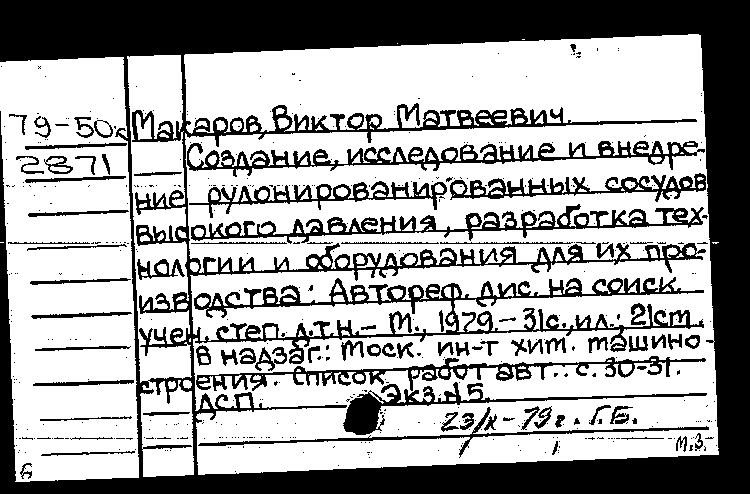 79-50с Макаров, Виктор Матвеевич.
2871 Создание, исследование и внедре-
ние рулонированированных сосудов
высокого давления, разработка тех-
нологии и оборудования для их про-
изводства: Автореф. дис. на соиск.
учен. степ. д.т.н. - М., 1979. - 31с., ил.; 21см.
В надзаг.: Моск. ин-т хим. машино-
строения. Список работ авт.: с. 30-31.
ДСП. Экз. №5.
23/X-79г. Г.Б.
М.З.